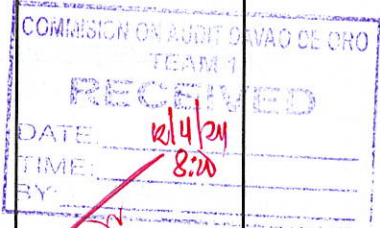 COMMISION ON AUDIT DAVAO DE ORO
TEAM 1
RECEIVED
DATE: 12/4/24
TIME: 8:20
BY: